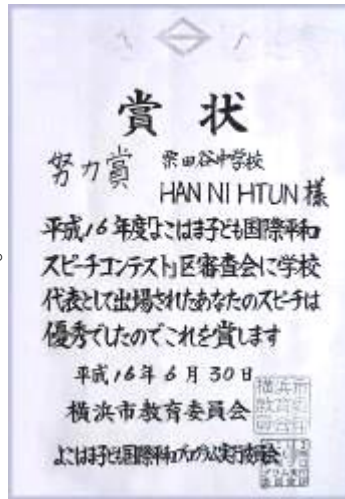 賞状
努力賞
栗田谷中学校
HAN NI HTUN 様
平成16年度「よこはま子ども国際平和
スピーチコンテスト」区審査会に学校
代表として出場されたあなたのスピーチは
優秀でしたのでこれを賞します
平成16年6月30日
横浜市教育委員会
よこはま子ども国際平和プログラム実行委員会